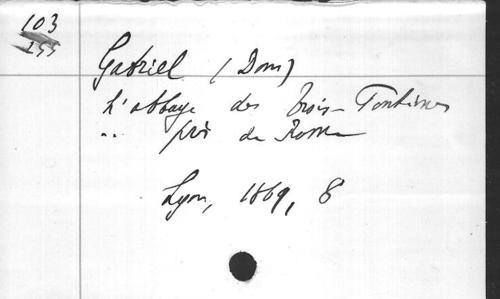 103
255
Gabriel (Dom)
L'abbaye des Trois-Fontaines
" près de Rome
Lyon, 1869, 8°